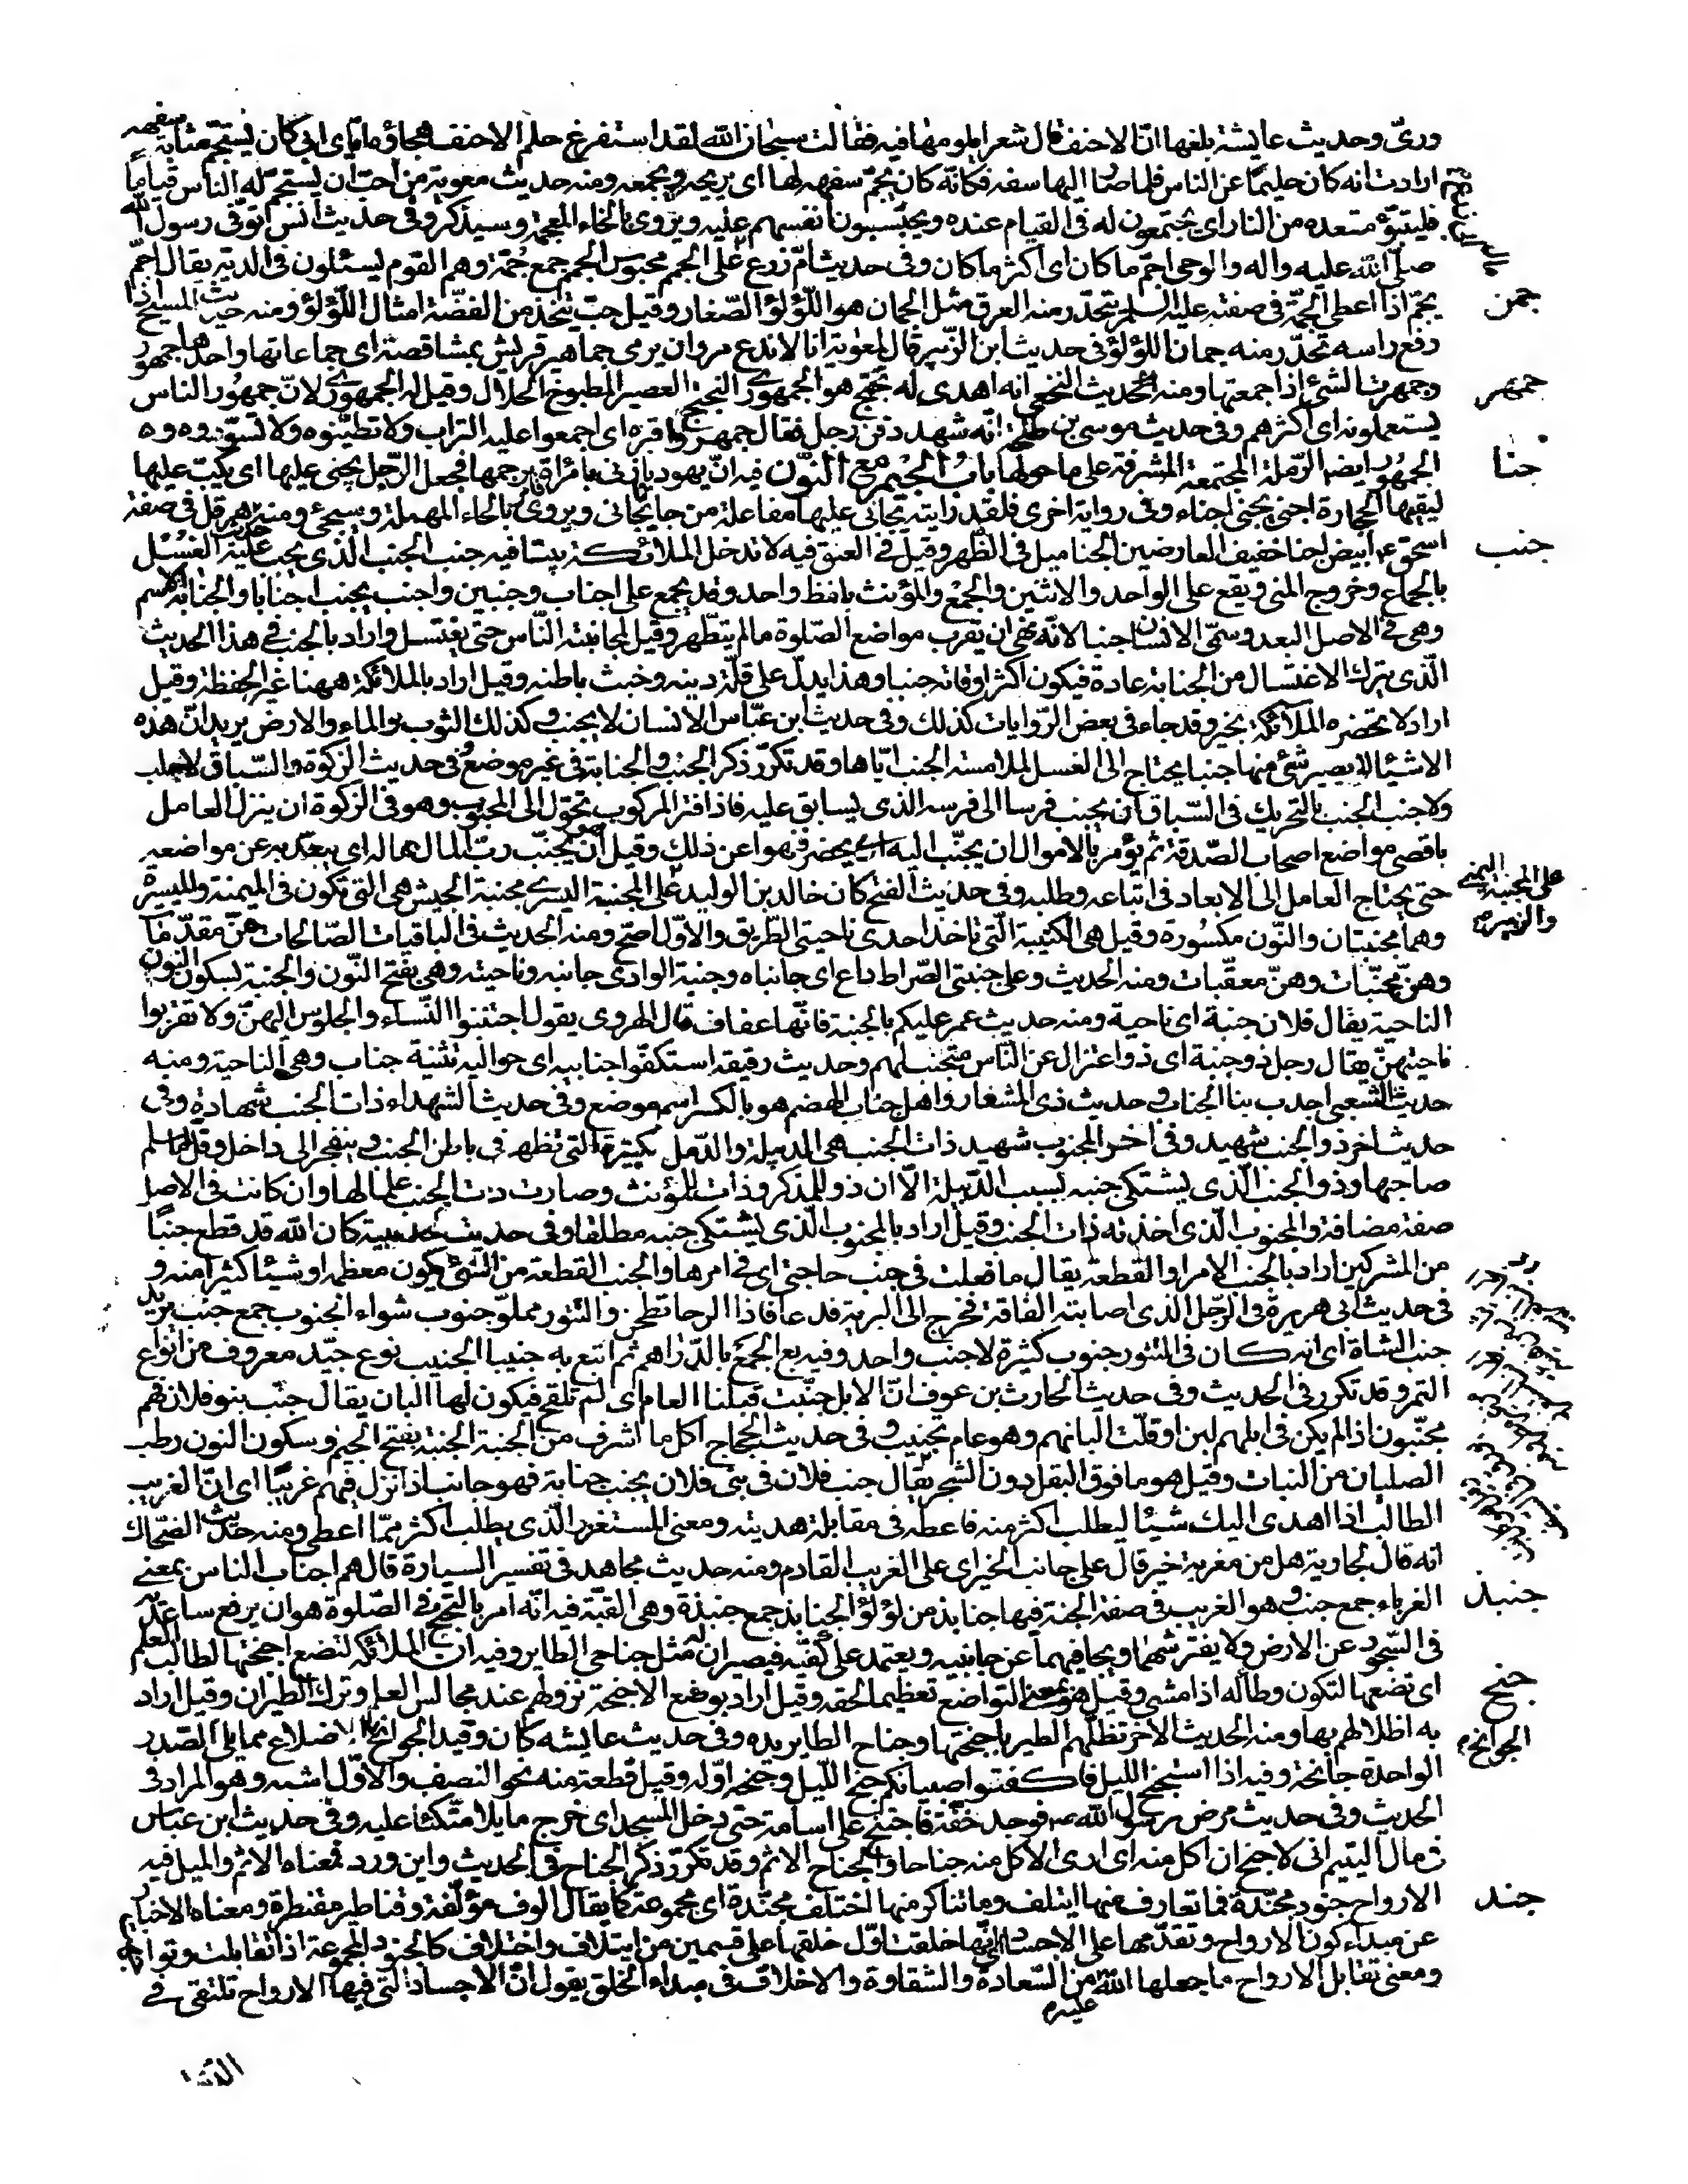 ورىّ وحديث عايشة بلغها انّ الاحنف قال شعرا يلومها فيه فقالت سبحان الله لقد استفرغ حلم الاحنف هجاؤه اياى ابى كان يستجمّ مثابة سفهه
ارادت انه كان حليمًا عن الناس فلما صار اليها سفه فكانّه كان يجمّ سفهه لها اى يريحه ويجمعه ومنه حديث معوية من احبّ ان يستجمّ له الناس قيامًا
فليتبوّء مقعده من النار اى يجتمعون له فى القيام عنده ويحبسون انفسهم عليه ويروى بالخاء المعجمة وسيذكر وفى حديث انس توفّى رسول الله
صلّى الله عليه واله والوحى اجمّ ما كان اى اكثر ما كان وفى حديث امّ زرع على الجمم محبوس الجمم جمع جُمّة وهم القوم يسئلون فى الدية يقال اجمّ
جمن
يجمّ اذا اعطى الجمّة فى صفته عليه السلم يتحدّر منه العرق مثل الجمان هو اللّؤلؤ الصّغار وقيل حبّ يتّخذ من الفضّة امثال اللّؤلؤ ومنه حديث المسيح اذا
رفع راسه تحدّر منه جمان اللؤلؤ فى حديث ابن الزّبير قال لمعوية انا لا ندع مروان يرمى جماهير قريش بمشاقصه اى جماعاتها واحدها جمهور
جمهر
وجمهرت الشئ اذا جمعتها ومنه الحديث النخعى انه اهدى له بختج هو الجمهورى البختج العصير المطبوخ الحلال وقيل له الجمهورى لانّ جمهور الناس
يستعملونه اى اكثرهم وفى حديث موسى بن طلحة انّه شهد دفن رجل فقال جمهروا قبره اى اجمعوا عليه التراب ولا تطيّنوه ولا تسوّوه وه
جنا
الجمهُور ايضا الرّملة المجتمعة المشرفة على ما حولها بابُ الجيم مع النّون فيه انّ يهوديا زنى بامرأة فامر برجمها فجعل الرّجل يجنى عليها اى يكبّ عليها
ليقيها الحجارة اجنى يجنى اجناء وفى رواية اخرى فلقد رايته يجانى عليها مفاعلة من جانا يجانى ويروى بالحاء المهملة وسيجئ ومنه حديث هرقل فى صفة
جنب
اسحق ع ابيض اجنا خفيف العارضين الجنا ميل فى الظّهر وقيل فى العنق فيه لا تدخل الملائكة بيتا فيه جنب الجنب الّذى يجب عليه الغسُل
بالجماع وخروج المنى ويقع على الواحد والاثنين والجمْع والمؤنث بلفظ واحد وقد يجمع على اجناب وجنبين واجنب يجنب اجنابا والجنابة الاسم
وهى فى الاصل البعد وسمّى الانسان جنبا لانّه نهى ان يقرب مواضع الصّلوة ما لم يتطّهر وقيل لمجانبته النّاس حتّى يغتسل واراد بالجنب فى هذا الحديث
الّذى يترك الاغتسال من الجنابة عادة فيكون اكثر اوقاته جنبا وهذا يدلّ على قلّة دينه وخبث باطنه وقيل اراد بالملائكة ههنا غير الحفظة وقيل
اراد لا تحضره الملائكة بخير وقد جاء فى بعض الرّوايات كذلك وفى حديث ابن عبّاس الانسان لا يجنب وكذلك الثوب والماء والارض يريد انّ هذه
الاشياء لا يصير شئ منها جنبا يحتاج الى الغسل لملامسة الجنب ايّاها وقد تكرّر ذكر الجنب والجنابة فى غير موضع فى حديث الزكوة والسّباق لا جلب
ولا جنب الجنب بالتحريك فى السّباق ان يجنب فرسا الى فرسه الذى يسابق عليه فاذا فتر المركوب تحوّل الى المجنوب وهو فى الزكوة ان ينزل العامل
باقصى مواضع اصحاب الصّدقة ثم يؤمر بالاموال ان يجنّب اليه اى يحضر فنهوا عن ذلك وقيل هو ان يجنّب ربّ المال بماله اى يبعّده عن مواضعه
حتى يحتاج العامل الى الابعاد فى اتّباعه وطلبه وفى حديث الفتح كان خالد بن الوليد على المجنبة اليسرى مجنبة الجيش هى التى تكون فى الميمنة والميسرة
على المجنبة اليمنى
والزبير
وهما مجنبتان والنّون مكسُورة وقيل هى الكتيبة الّتى تاخذ احدى ناحيتى الطّريق والاوّل اصحّ ومنه الحديث فى الباقيات الصّالحات هنّ مقدّمات
وهنّ مجنّبات وهنّ معقّبات ومنه الحديث وعلى جنبتى الصّراط داع اى جانباه وجنبة الوادى جانبه وناحيته وهى بفتح النّون والجنبة بسكون النون
الناحية يقال فلان جنبة اى ناحية ومنه حديث عمر عليكم بالجنبة فانّها عفاف قال الهروى يقول اجتنبوا النّساء والجلوس اليهنّ ولا تقربوا
ناحيتهنّ يقال رجل ذو جنبة اى ذو اعتزال عن النّاس متجنب لهم وحديث رقيقة استكفّوا جنابيه اى حواليه تثنية جناب وهى الناحية ومنه
حديث الشعبى اجدب بنا الجناب وحديث ذى المشعار واهل جناب الهضم هو بالكسر اسم موضع وفى حديث الشهداء ذات الجنب شهادة وفى
حديث اخر ذو الجنب شهيد وفى اخر المجنوب شهيد ذات الجنب هى الدبيلة والدّمل الكبيرة التى تظهر فى باطن الجنب وينفجر الى داخل وقلّما يسلم
صاحبها وذو الجنب الّذى يشتكى جنبه بسبب الدّبيلة الّا ان ذو للمذكر وذات للمؤنث وصارت ذات الجنب علما لها وان كانت فى الاصل
صفة مضافة والمجنوب الّذى اخذته ذات الجنب وقيل اراد بالمجنوب الّذى يشتكى جنبه مطلقا وفى حديث الحديبية كان الله قد قطع جنبًا
من المشركين اراد بالجنب الامر او القطعة يقال ما فعلت فى جنب حاجتى اى فى امرها والجنب القطعة من الشئ يكون معظمه او شيئا كثيرا منه و
فى حديث ابى هريرة فى الرّجل الذى اصابته الفاقة فخرج الى البرية فدعا فاذا الرحا تطحن والتنّور مملوّ جنوب شواء الجنوب جمع جنب يريد
جنب الشاة اى انه كان فى التنور جنوب كثيرة لا جنب واحد وفيه بع الجمع بالدّراهم ثم ابتع به جنيبا الجنيب نوع جيّد معروف من انواع
التمر وقد تكرر فى الحديث وفى حديث الحارث بن عوف انّ الابل جنّبت قبلنا العام اى لم تلقح فيكون لها البان يقال جنّب بنو فلان فهم
مجنّبون اذا لم يكن فى ابلهم لبن او قلّت البانهم وهو عام تجنيب وفى حديث الحجّاج اكل ما اشرف من الجنبة الجنبة بفتح الجيم وسكون النون رطب
الصلّيان من النبات وقيل هو ما فوق البقل دون الشجر يقال جنب فلان فى بنى فلان يجنب جنابة فهو جانب اذا نزل فيهم غريبًا اى انّ الغريب
الطالب اذا اهدى اليك شيئا ليطلب اكثر منه فاعطه فى مقابلة هديته ومعنى المستغزر الّذى يطلب اكثر ممّا اعطى ومنه حديث الضحّاك
انه قال لجارية هل من مغربة خبر قال على جانب الخبر اى على الغريب القادم ومنه حديث مجاهد فى تفسير السيارة قال هم اجناب الناس بمعنى
جنبذ
الغرباء جمع جنب وهو الغريب فى صفة الجنة فيها جنابذ من لؤلؤ الجنابذ جمع جنبذة وهى القبّة فيه انّه امر بالتجنّح فى الصّلوة هو ان يرفع ساعديه
فى السّجود عن الارض ولا يفترشهما ويجافيهما عن جانبيه ويعتمد على كفّيه فيصيران له مثل جناحى الطاير وفيه ان الملائكة لتضع اجنحتها لطالب العلم
جنح
اى تضعها لتكون وطأ له اذا مشى وقيل هو بمعنى التواضع تعظيما لحقه وقيل اراد بوضع الاجنحة نزولهم عند مجالس العلم وترك الطيران وقيل اراد
به اظلالهم بها ومنه الحديث الاخر تظلّهم الطير باجنحتها وجناح الطاير يده وفى حديث عايشه كان وقيد الجوانح الاضلاع مما يلى الصّدر
الجوانح
الواحدة جانحة وفيه اذا استجنح الليل فاكفتوا صبيانكم جنح اللّيل وجنحه اوّله وقيل قطعة منه نحو النصف والاوّل اشبه وهو المراد فى
الحديث وفى حديث مرض رسول الله ص فوجد خفّة فاجتنح على اسامة حتى دخل المسجد اى خرج مايلا متّكئا عليه وفى حديث ابن عباس
فى مال اليتيم انى لاجنح ان اكل منه اى ارى الاكل منه جناحا والجناح الاثم وقد تكرّر ذكر الجناح فى الحديث واين ورد فمعناه الاثم والميل فيه
جند
الارواح جنود مجنّدة فما تعارف منها ايتلف وما تناكر منها اختلف مجنّدة اى مجموعة كما يقال الوف مؤلّفة وقناطير مقنطرة ومعناه الاخبار
عن مبداء كون الارواح وتقدّمها على الاجساد اى انّها خلقت اوّل خلقها على قسمين من ايتلاف واختلاف كالجنود المجموعة اذا تقابلت وتواجهت
ومعنى تقابل الارواح ما جعلها الله عليه من السّعادة والشقاوة والاخلاق فى مبداء الخلق يقول انّ الاجساد التى فيها الارواح تلتقى فى
الدّنيا